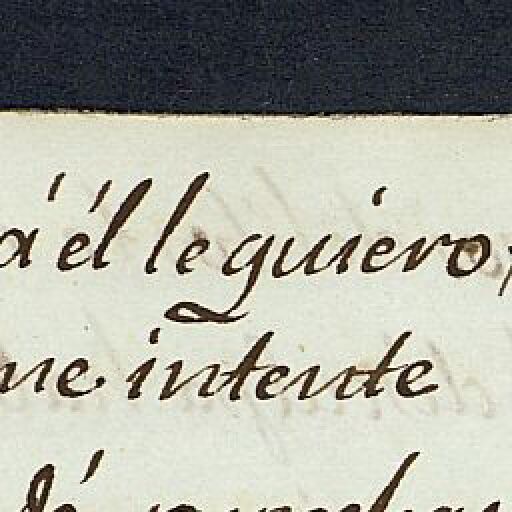 á él le quiero,
me intente